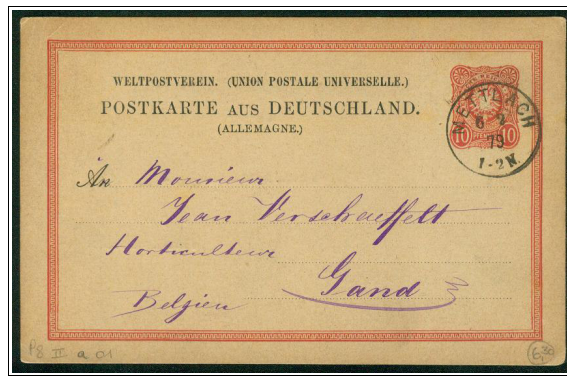 WELTPOSTVEREIN. (UNION POSTALE UNIVERSELLE.)
POSTKARTE AUS DEUTSCHLAND.
(ALLEMAGNE.)
METTLACH
6 2
79
1-2N.
10 PFENNIG 10
An Monsieur
Jean Verschaffelt
Horticulteur
Gand
Belgien
P8 II a 01
6,30